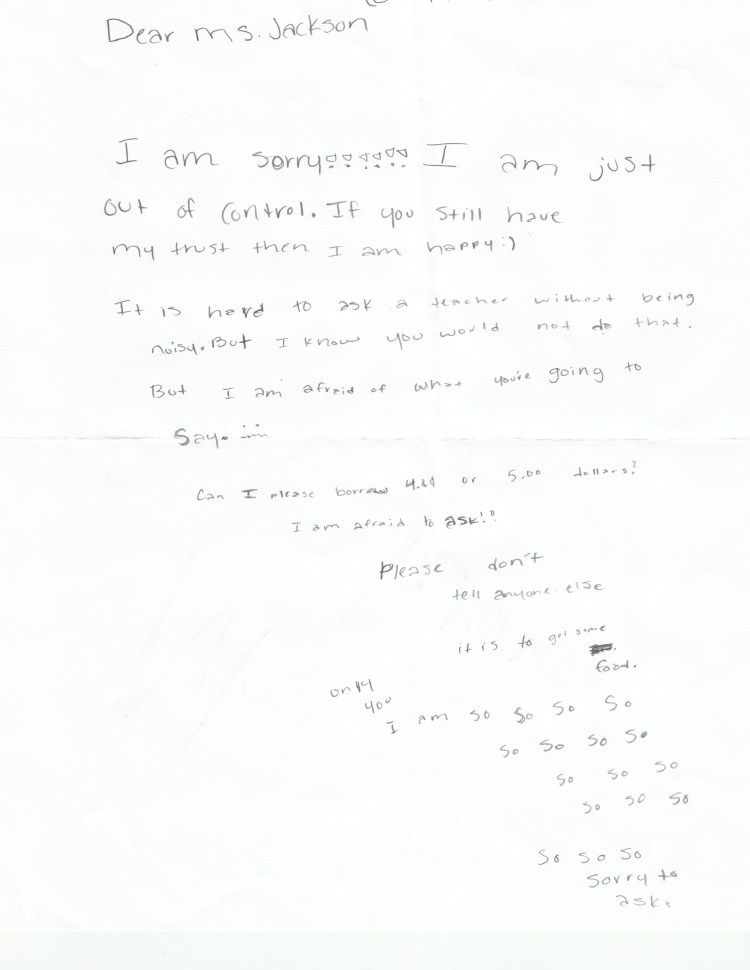 Dear ms. Jackson
I am sorry!!!!!! I am just
out of control. If you still have
my trust then I am happy:)
It is hard to ask a teacher without being
noisy. But I know you would not do that.
But I am afraid of what you're going to
say.
Can I please borrow or 5.00 dollars?
I am afraid to ask!!!
Please don't
tell anyone else
it is to get some
food.
only
you
I am so so so so
so so so so
so so so
so so so
so so so
sorry to
ask.